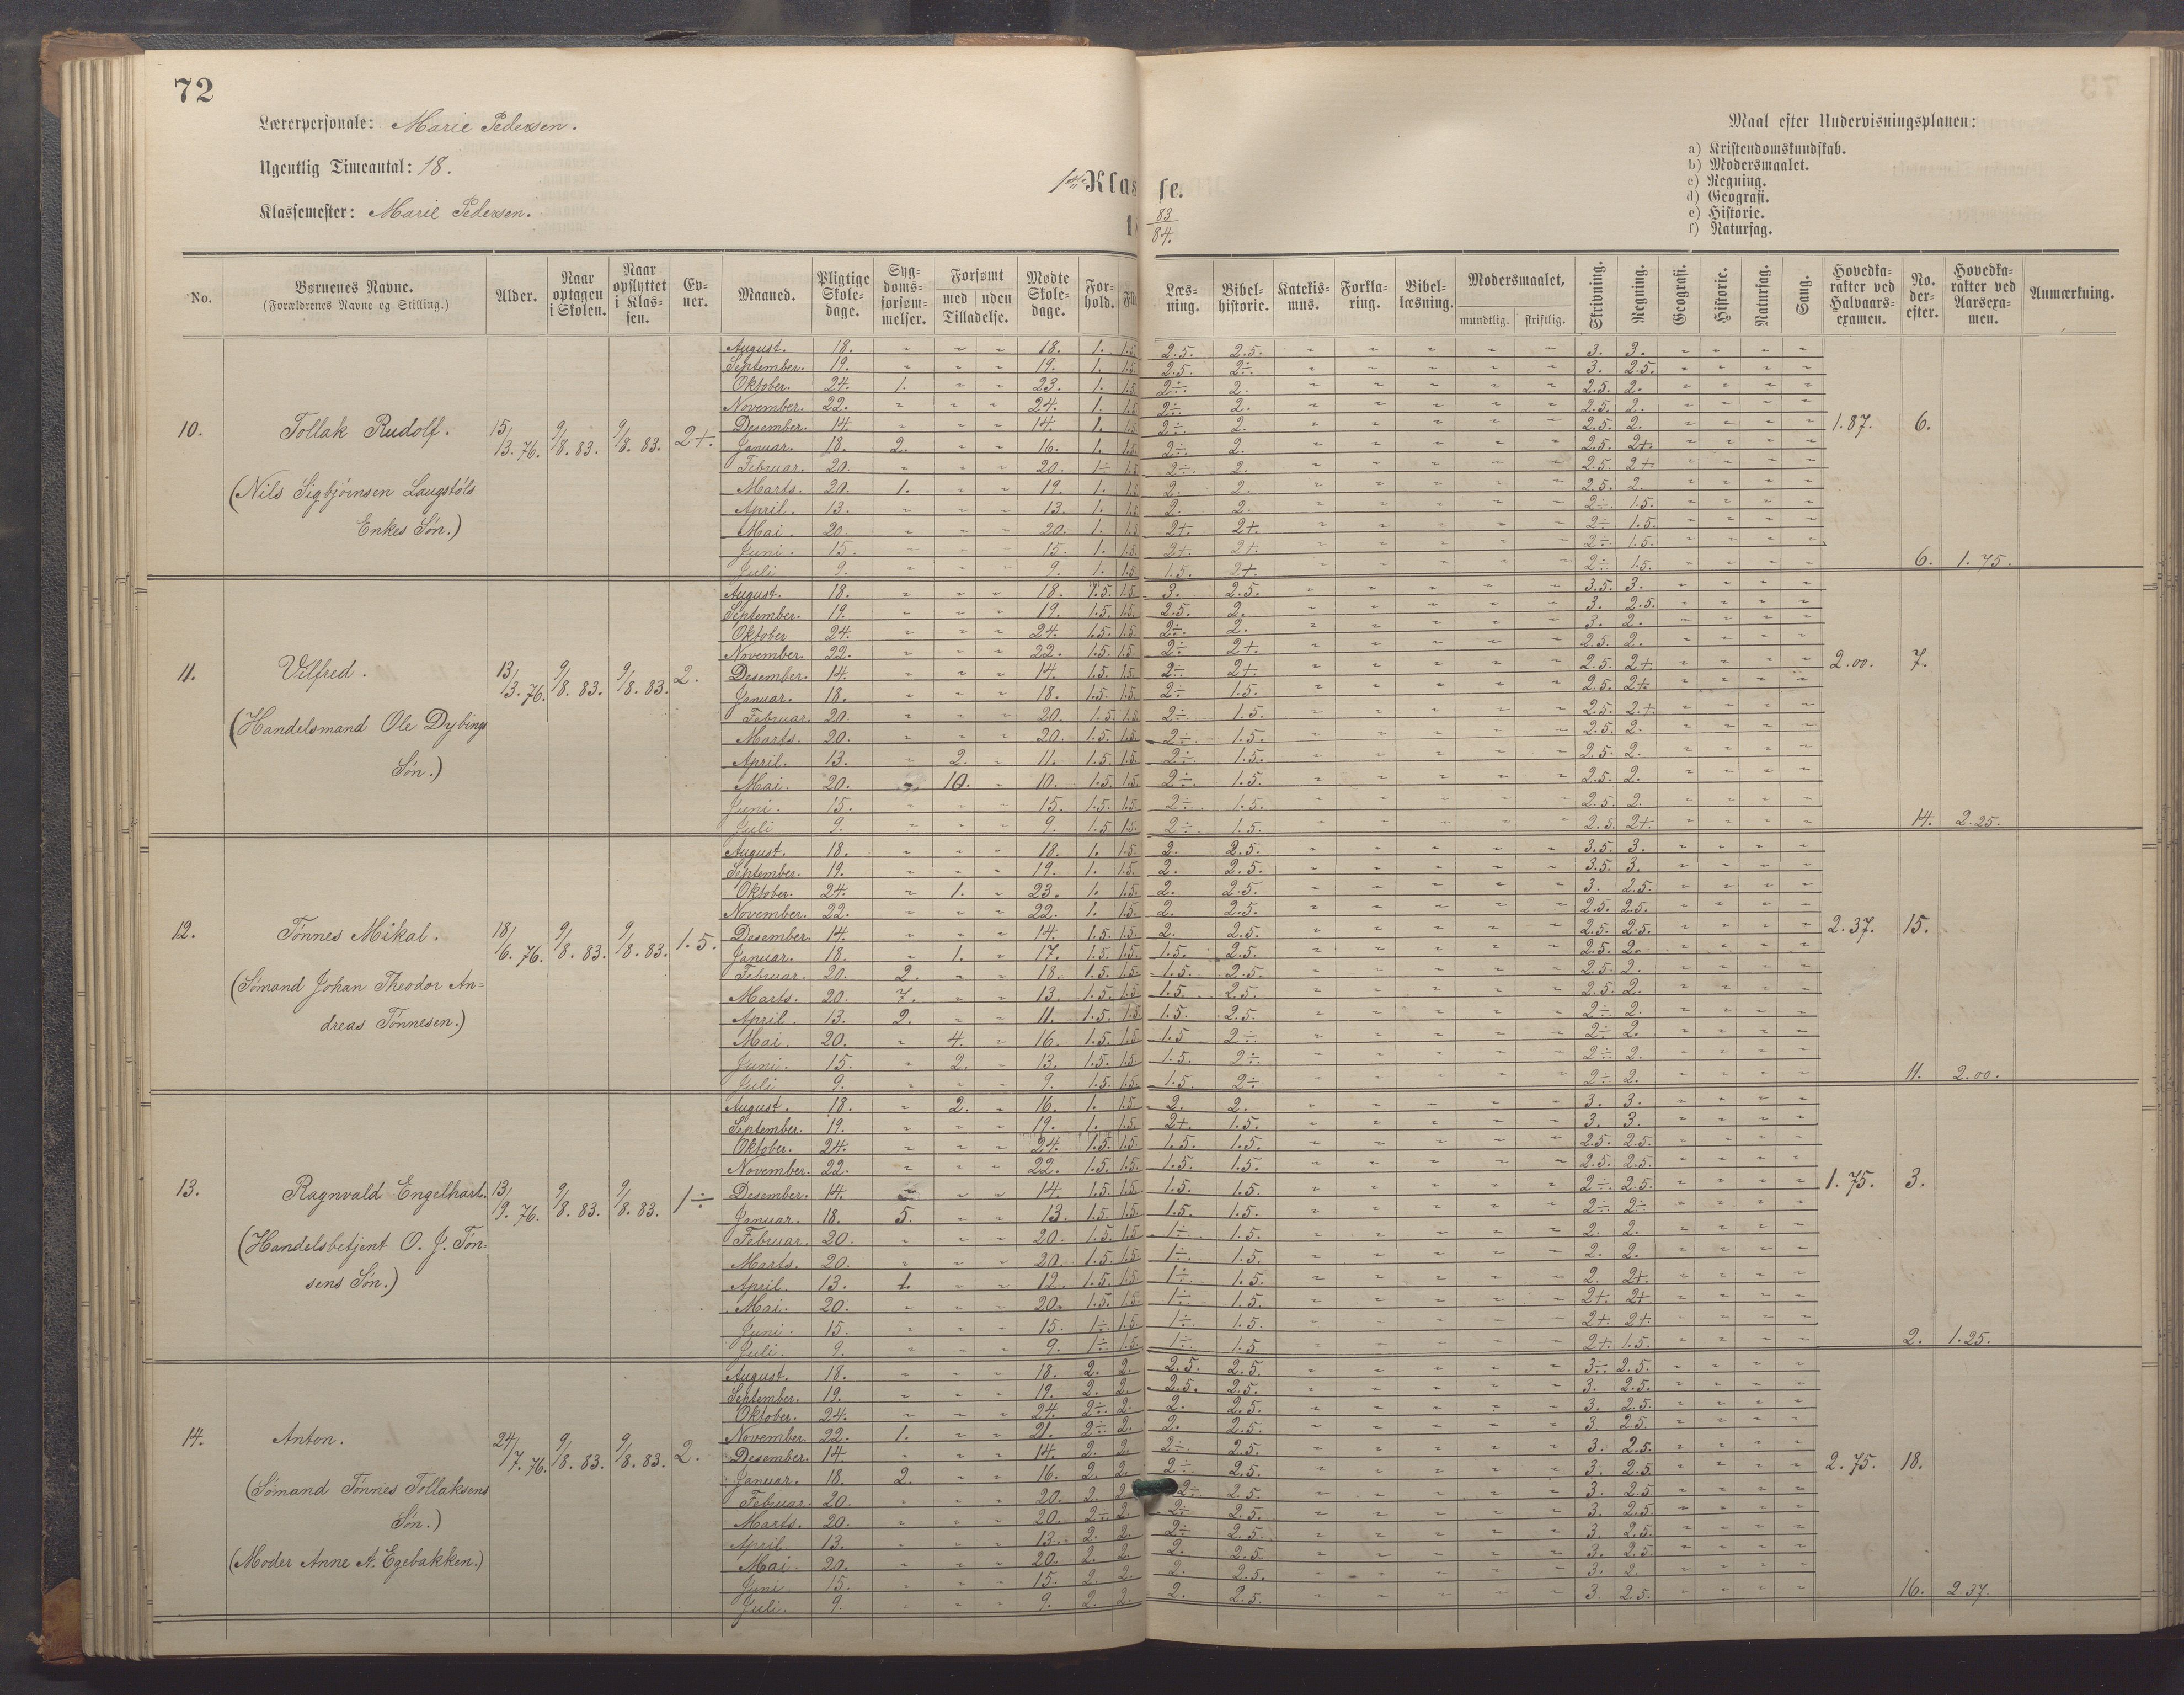 72
Lærerpersonale: Marie Pedersen.
Ugentlig Timeantal: 18.
Klassemester: Marie Pedersen.
1ste Klasse.
18 83/84.
Maal efter Undervisningsplanen:
a) Kristendomskundskab.
b) Modersmaalet.
c) Regning.
d) Geografi.
e) Historie.
f) Naturfag.
No. | Børnenes Navne. (Forældrenes Navne og Stilling.) | Alder. | Naar optagen i Skolen. | Naar opflyttet i Klassen. | Evner. | Maaned. | Pligtige Skoledage. | Sygdomsforsømmelser. | Forsømt med / uden Tilladelse. | Mødte Skoledage. | Forhold. | Fl | Læsning. | Bibelhistorie. | Katekismus. | Forklaring. | Bibellæsning. | Modersmaalet, mundtlig. / skriftlig. | Skrivning. | Regning. | Geografi. | Historie. | Naturfag. | Sang. | Hovedkarakter ved Halvaarsexamen. | No. derefter. | Hovedkarakter ved Aarsexamen. | Anmærkning.
10. Tollak Rudolf. 15/13. 76. 9/8. 83. 9/8. 83. 2+. 1.87. 6.
(Nils Sigbjörnsen Laugstöls
Enkes Sön.)
August. 18. " " " 18. 1. 1.5 2.5. 2.5. " " " " " 3. 3. " " " "
September. 19. " " " 19. 1. 1.5 2.5. 2÷. " " " " " 3. 2.5. " " " "
Oktober. 24. 1. " " 23. 1. 1.5 2÷. 2. " " " " " 2.5. 2. " " " "
November. 22. " " " 24. 1. 1.5 2÷. 2. " " " " " 2.5. 2. " " " "
Desember. 14. " " " 14. 1. 1.5 2÷. 2. " " " " " 2.5. 2. " " " "
Januar. 18. 2. " " 16. 1. 1.5 2÷. 2. " " " " " 2.5. 2+. " " " "
Februar. 20. " " " 20. 1÷ 1.5 2÷. 2. " " " " " 2.5. 2+. " " " "
Marts. 20. 1. " " 19. 1. 1.5 2. 2. " " " " " 2.5. 2. " " " "
April. 13. " " " 13. 1. 1.5 2. 2. " " " " " 2÷ 1.5. " " " "
Mai. 20. " " " 20. 1. 1.5 2+. 2+. " " " " " 2÷ 1.5. " " " "
Juni. 15. " " " 15. 1. 1.5 2+. 2+. " " " " " 2÷. 1.5. " " " "
Juli 9. " " " 9. 1. 1.5 1.5. 2+. " " " " " 2÷ 1.5. " " " " 6. 1.75.
11. Vilfred. 13/13. 76. 9/8. 83. 9/8. 83. 2. 2.00. 7.
(Handelsmand Ole Dybings
Sön.)
August. 18. " " " 18. 1.5. 1.5. 3. 2.5. " " " " " 3.5. 3. " " " "
September. 19. " " " 19. 1.5. 1.5. 2.5. 2. " " " " " 3. 2.5. " " " "
Oktober 24. " " " 24. 1.5. 1.5. 2÷. 2. " " " " " 3. 2. " " " "
November. 22. " " " 22. 1.5. 1.5. 2÷ 2+ " " " " " 2.5. 2. " " " "
Desember. 14. " " " 14. 1.5. 1.5. 2÷ 2+. " " " " " 2.5. 2+ " " " "
Januar. 18. " " " 18. 1.5. 1.5. 2÷ 1.5. " " " " " 2.5. 2+. " " " "
Februar. 20. " " " 20. 1.5. 1.5 2÷. 1.5. " " " " " 2.5. 2+. " " " "
Marts. 20. " " " 20. 1.5. 1.5. 2÷. 1.5. " " " " " 2.5. 2. " " " "
April. 13. " 2. " 11. 1.5. 1.5 2÷. 1.5. " " " " " 2.5. 2. " " " "
Mai. 20. " 10. " 10. 1.5. 1.5 2÷. 1.5. " " " " " 2.5. 2. " " " "
Juni. 15. " " " 15. 1.5. 1.5. 2÷. 1.5. " " " " " 2.5. 2. " " " "
Juli 9. " " " 9. 1.5. 1.5. 2÷. 1.5. " " " " " 2.5. 2+. " " " " 14. 2.25.
12. Tönnes Mikal. 18/6. 76. 9/8. 83. 9/8. 83. 1.5. 2.37. 15.
(Sömand Johan Theodor An=
dreas Tönnesen.)
August. 18. " " " 18. 1. 1.5. 2. 2.5. " " " " " 3.5. 3. " " " "
September. 19. " " " 19. 1. 1.5. 2. 2.5. " " " " " 3.5. 3. " " " "
Oktober. 24. " 1. " 23. 1. 1.5. 2. 2.5. " " " " " 3. 2.5. " " " "
November. 22. " " " 22. 1. 1.5. 2. 2.5. " " " " " 2.5. 2.5. " " " "
Desember. 14. " " " 14. 1.5. 1.5. 2. 2.5. " " " " " 2.5. 2.5. " " " "
Januar. 18. " 1. " 17. 1.5. 1.5. 1.5. 2.5. " " " " " 2.5. 2. " " " "
Februar. 20. 2. " " 18. 1.5. 1.5. 1.5. 2.5. " " " " " 2.5. 2. " " " "
Marts. 20. 7. " " 13. 1.5. 1.5. 1.5. 2.5. " " " " " 2.5. 2. " " " "
April. 13. 2. " " 11. 1.5. 1.5 1.5. 2.5. " " " " " 2÷ 2. " " " "
Mai. 20. " 4. " 16. 1.5. 1.5. 1.5 2÷. " " " " " 2÷ 2. " " " "
Juni. 15. " 2. " 13. 1.5. 1.5. 1.5. 2÷. " " " " " 2÷. 2. " " " "
Juli 9. " " " 9. 1.5. 1.5. 1.5. 2÷ " " " " " 2÷ 2. " " " " 11. 2.00.
13. Ragnvald Engelhart. 13/9. 76. 9/8. 83. 9/8. 83. 1÷ 1.75. 3.
(Handelsbetjent O. J. Tön=
sens Sön.)
August. 18. " 2. " 16. 1. 1.5. 2. 2. " " " " " 3. 3. " " " "
September. 19. " " " 19. 1. 1.5. 2+. 1.5. " " " " " 3. 3. " " " "
Oktober. 24. " " " 24. 1.5. 1.5. 1.5. 1.5. " " " " " 2.5. 2.5. " " " "
November. 22. " " " 22. 1.5. 1.5. 1.5. 1.5. " " " " " 2.5. 2.5. " " " "
Desember. 14. " " " 14. 1.5. 1.5. 1.5. 1.5. " " " " " 2÷. 2.5. " " " "
Januar. 18. 5. " " 13. 1.5. 1.5. 1.5. 1.5. " " " " " 2÷ 2÷ " " " "
Februar. 20. " " " 20. 1.5. 1.5 1÷. 1.5. " " " " " 2. 2. " " " "
Marts. 20. " " " 20. 1.5. 1.5. 1÷. 1.5. " " " " " 2. 2. " " " "
April. 13. 1. " " 12. 1.5. 1.5. 1÷ 1.5. " " " " " 2. 2+. " " " "
Mai. 20. " " " 20. 1.5. 1.5. 1÷. 1.5. " " " " " 2+. 2+. " " " "
Juni. 15. " " " 15. 1÷. 1.5. 1÷. 1.5. " " " " " 2+. 2+. " " " "
Juli. 9. " " " 9. 1÷. 1.5. 1÷. 1.5. " " " " " 2+. 1.5. " " " " 2. 1.25.
14. Anton. 24/7. 76. 9/8. 83. 9/8. 83. 2. 2.75. 18.
(Sömand Tönnes Tollaksens
Sön.)
(Moder Anne A. Egebakken.)
August. 18. " " " 18. 2. 2. 2.5. 2.5. " " " " " 3÷ 2.5. " " " "
September. 19. " " " 19. 2. 2. 2.5. 2.5. " " " " " 3. 2.5. " " " "
Oktober. 24. " " " 24. 2÷. 2. 2. 2.5. " " " " " 3. 2.5. " " " "
November. 22. 1. " " 21. 2÷ 2. 2. 2.5. " " " " " 3. 2.5. " " " "
Desember. 14. " " " 14. 2. 2. 2÷. 2.5. " " " " " 3. 2.5. " " " "
Januar. 18. 2. " " 16. 2. 2. 2÷. 2.5. " " " " " 3. 2.5 " " " "
Februar. 20. " " " 20. 2. 2 2÷. 2.5. " " " " " 3. 2.5 " " " "
Marts. 20. " " " 20. 2÷ 2. 2÷ 2.5. " " " " " 3. 2.5. " " " "
April. 13. " " " 13. 2. 2. 2÷ 2.5. " " " " " 3. 2.5. " " " "
Mai. 20. " " " 20. 2. 2. 2. 2.5. " " " " " 3. 2.5. " " " "
Juni. 15. " " " 15. 2. 2. 2. 2.5. " " " " " 3. 2. " " " "
Juli. 9. " " " 9. 2. 2. 2. 2.5. " " " " " 3. 2.5. " " " " 16. 2.37.